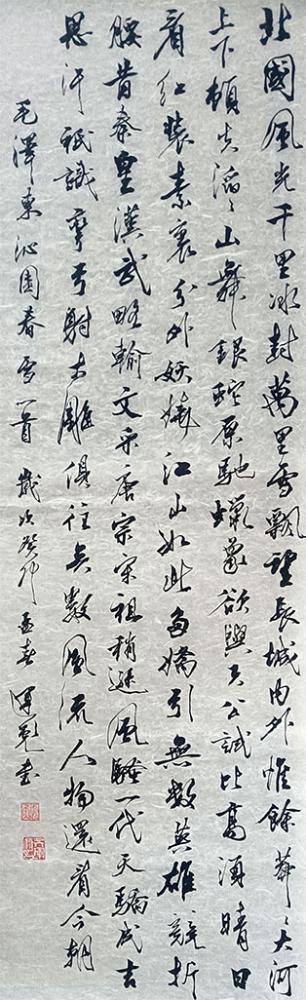 北國風光千里冰封萬里雪飄望長城内外惟餘莽〻大河
上下頓失滔〻山舞銀蛇原馳蠟象欲與天公試比高須晴日
看紅裝素裹分外妖嬈江山如此多嬌引無數英雄競折
腰昔秦皇漢武略輸文采唐宗宋祖稍遜風騷一代天驕成吉
思汗祇識彎弓射大雕俱往矣數風流人物還看今朝
毛澤東沁園春雪一首 歲次癸卯孟春 書